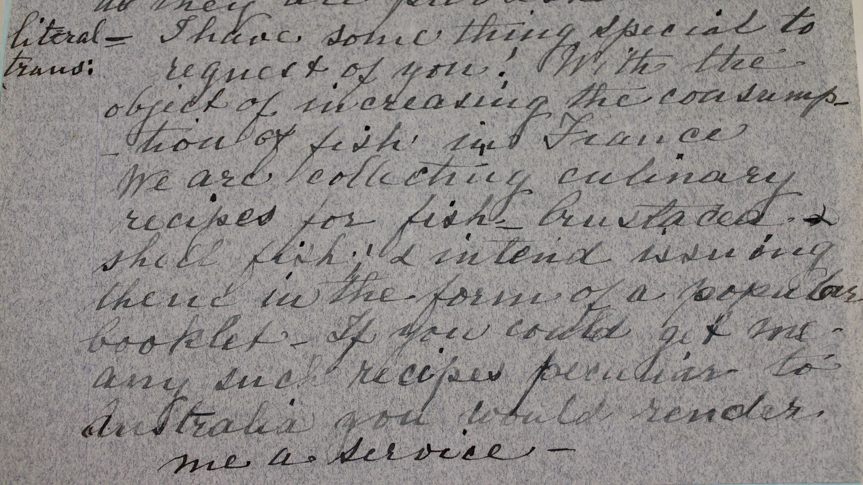 as they are
literal= I have some thing special to
trans: request of you! With the
object of increasing the consump-
-tion of fish in France
We are collecting culinary
recipes for fish - Crustacea - &
shell fish; & intend issuing
them in the form of a popular
booklet - If you could get me -
any such recipes peculiar to
Australia you would render
me a service -